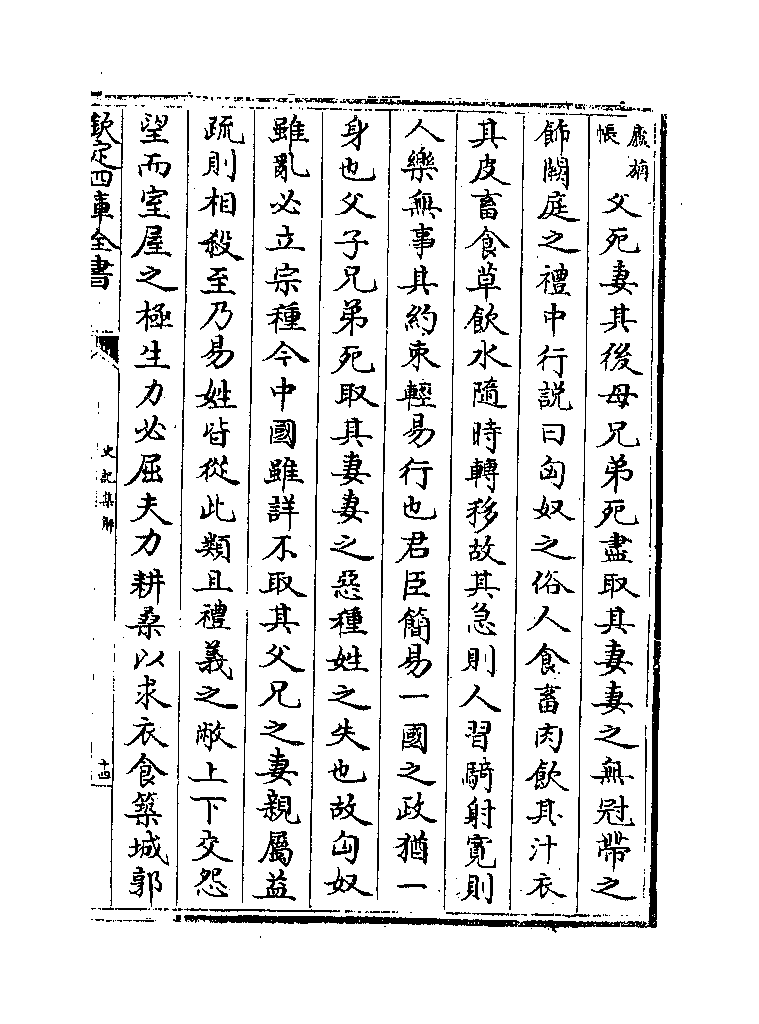 廬旃帳父死妻其後母兄弟死盡取其妻妻之無冠帶之
飾闕庭之禮中行説曰匈奴之俗人食畜肉飲其汁衣
其皮畜食草飲水隨時轉移故其急則人習騎射寛則
人樂無事其約束輕易行也君臣簡易一國之政猶一
身也父子兄弟死取其妻妻之惡種姓之失也故匈奴
雖亂必立宗種今中國雖詳不取其父兄之妻親屬益
疏則相殺至乃易姓皆從此類且禮義之敝上下交怨
望而室屋之極生力必屈夫力耕桑以求衣食築城郭
欽定四庫全書
史記集解
十四